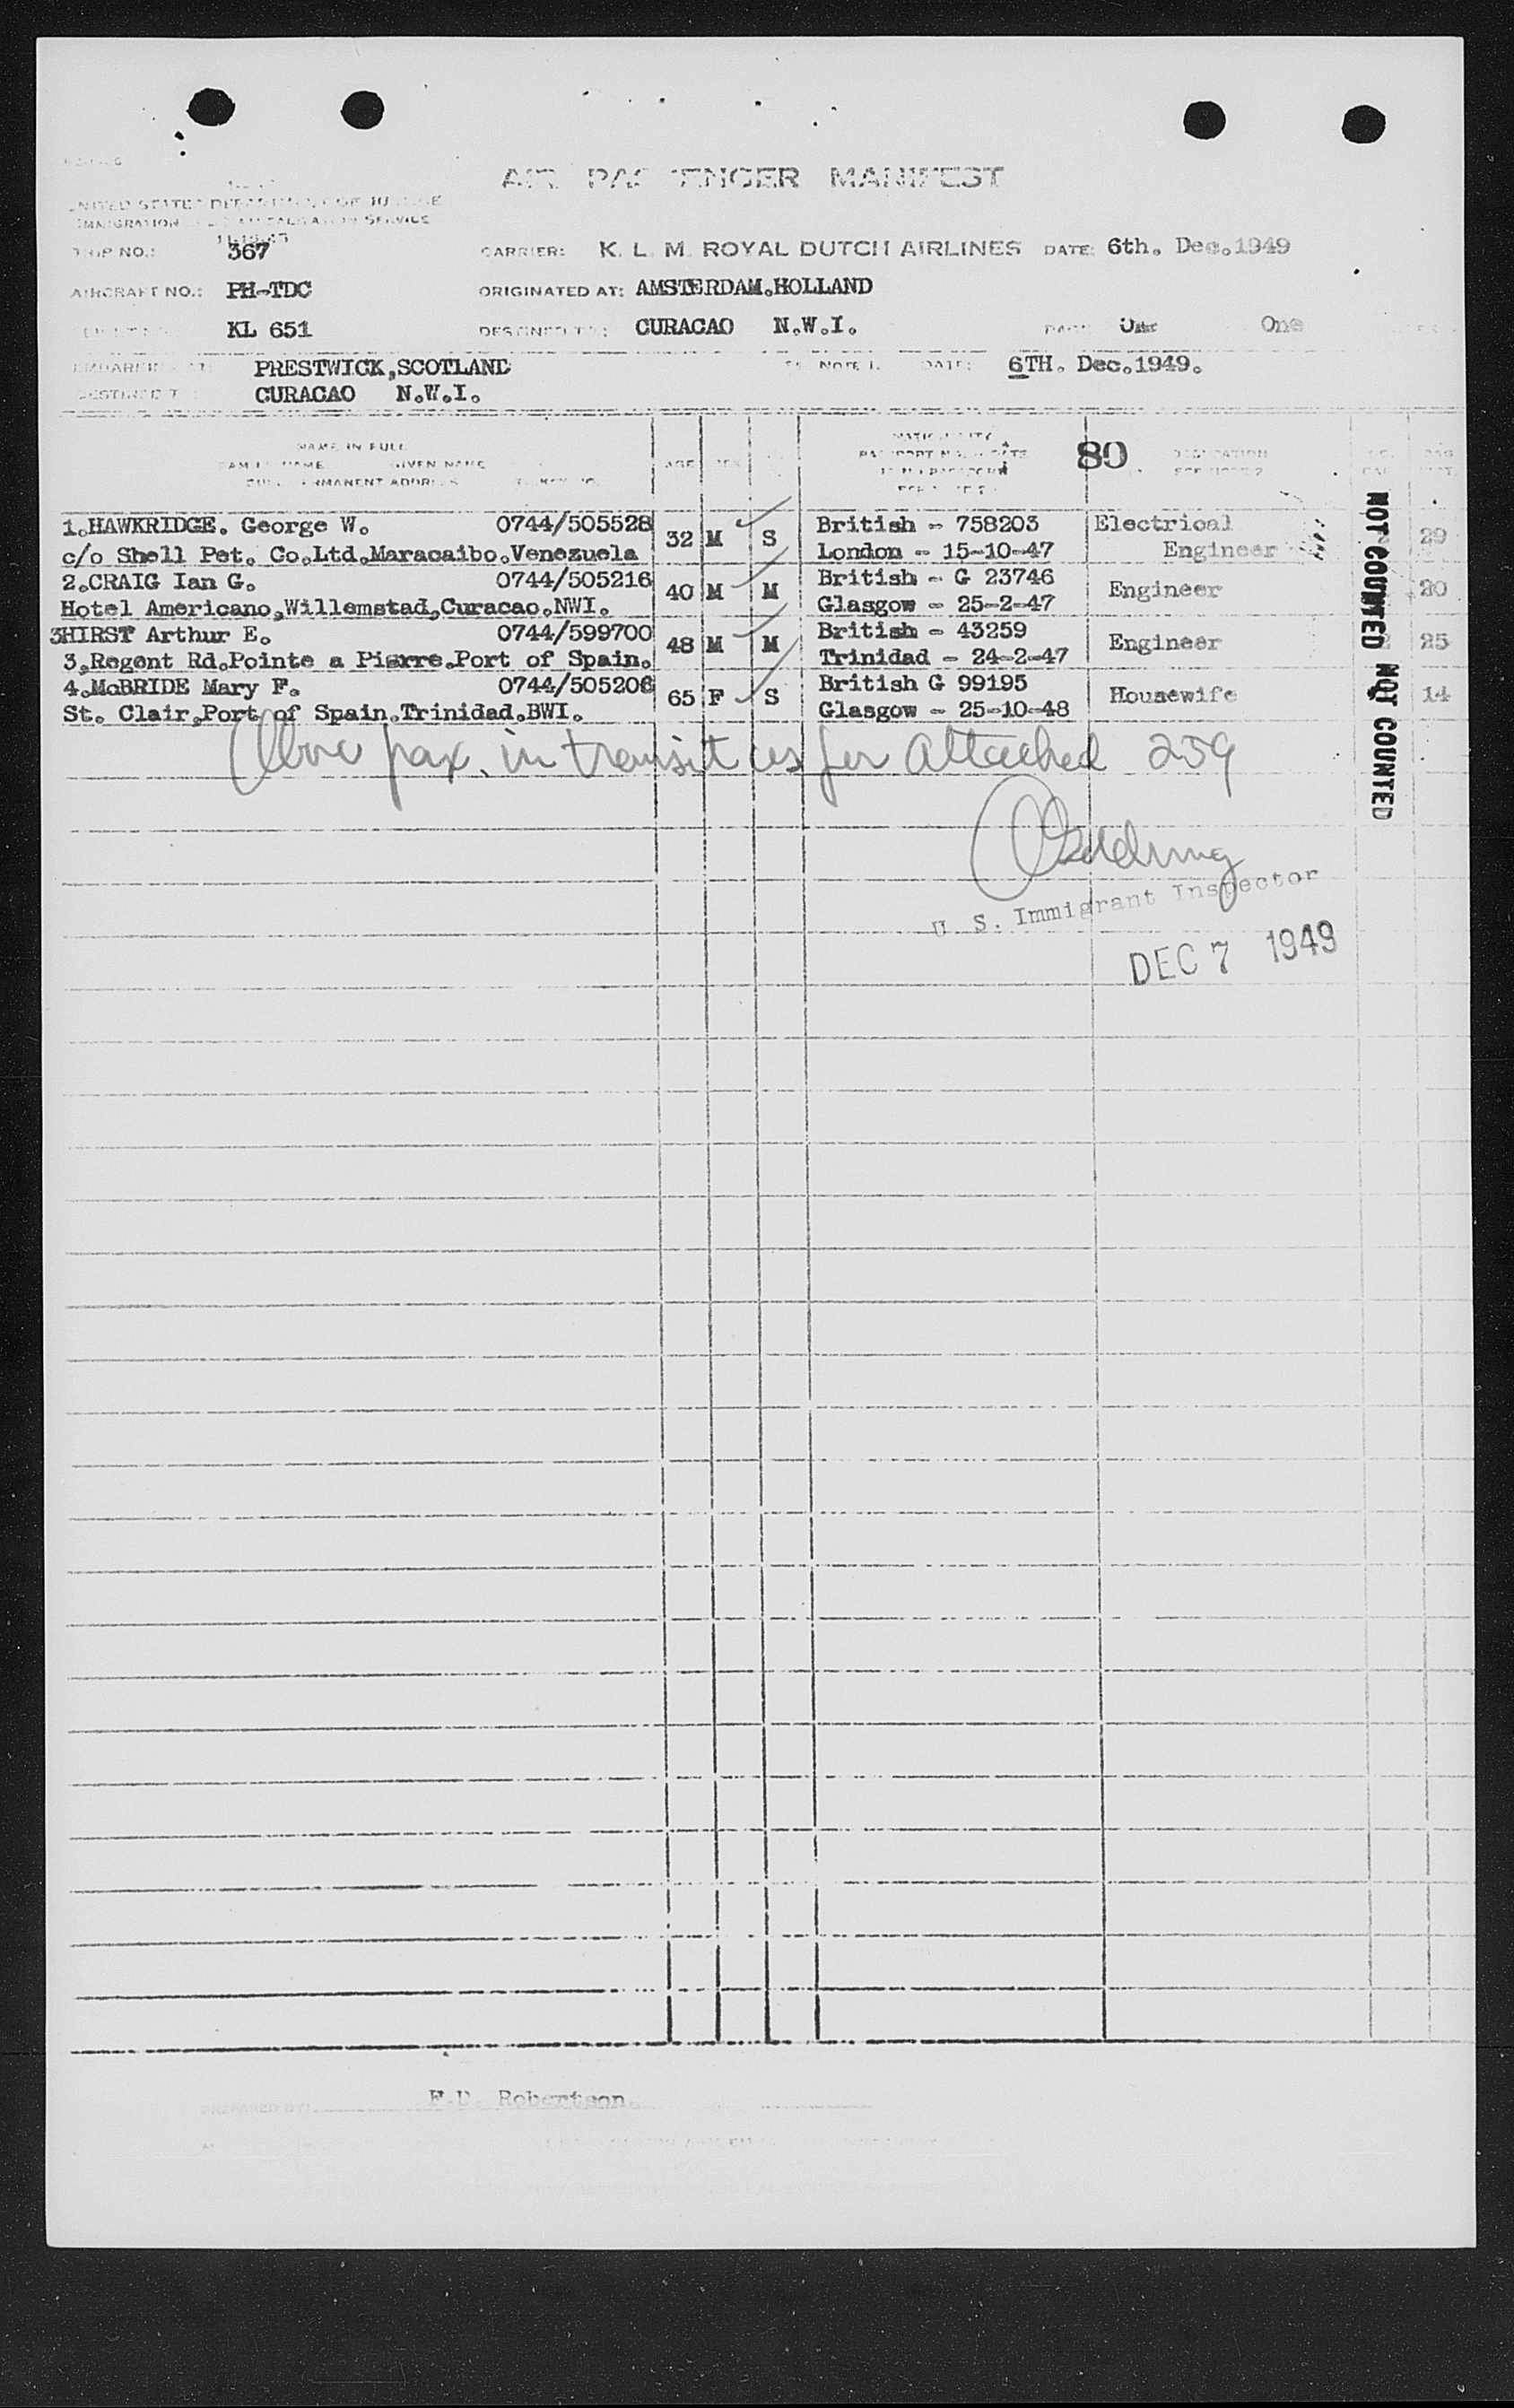 AIR PASSENGER MANIFEST
UNITED STATES DEPARTMENT OF JUSTICE
IMMIGRATION NATURALIZATION SERVICE
TRIP NO.: 367 CARRIER: K. L. M. ROYAL DUTCH AIRLINES DATE: 6th. Dec.1949
AIRCRAFT NO.: PH-TDC ORIGINATED AT: AMSTERDAM.HOLLAND
KL 651 DESTINED TO: CURACAO N.W.I. PAGE One
EMBARKED AT: PRESTWICK,SCOTLAND DATE: 6TH. Dec.1949.
DESTINED TO CURACAO N.W.I.
NAME IN FULL
FAMILY NAME GIVEN NAME AGE SEX 80
1.HAWKRIDGE. George W. 0744/505528 32 M S British - 758203 Electrical 29
c/o Shell Pet. Co.Ltd.Maracaibo.Venezuela London - 15-10-47 Engineer
2.CRAIG Ian G. 0744/505216 40 M M British - G 23746 Engineer 20
Hotel Americano,Willemstad,Curacao.NWI. Glasgow - 25-2-47
3HIRST Arthur E. 0744/599700 48 M M British - 43259 Engineer 25
3,Regent Rd.Pointe a Pierre.Port of Spain. Trinidad - 24-2-47
4.McBRIDE Mary F. 0744/505206 65 F S British G 99195 Housewife 14
St. Clair,Port of Spain.Trinidad.BWI. Glasgow - 25-10-48
NOT COUNTED NOT COUNTED
Above pax. in transit as per attached 259
U S. Immigrant Inspector
DEC 7 1949
PREPARED BY: F.D. Robertson.